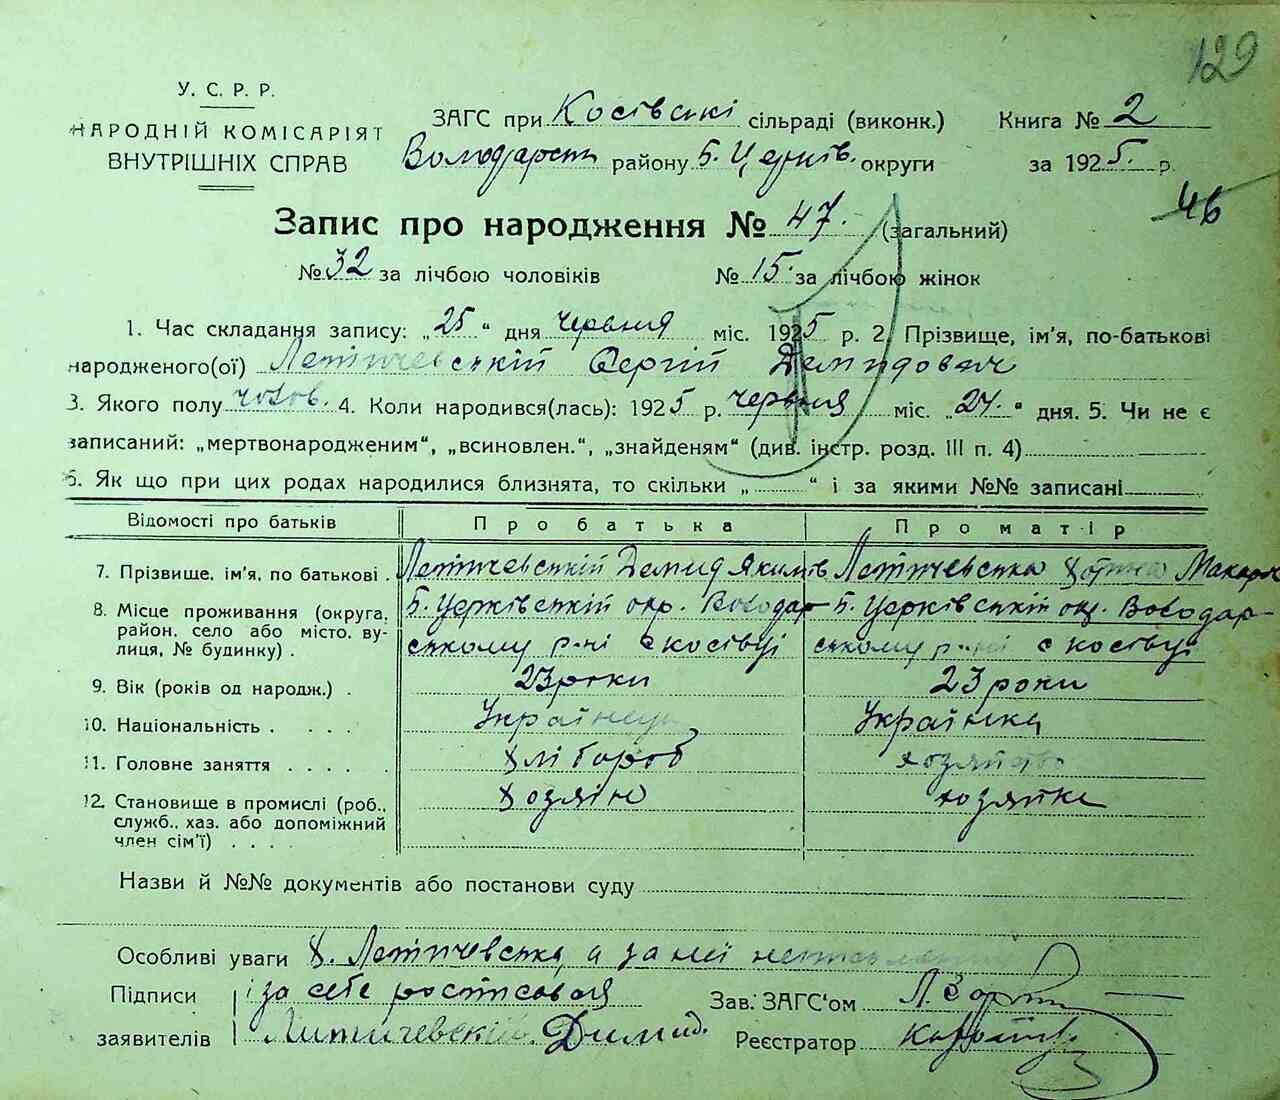 129
У. С. Р. Р.
НАРОДНІЙ КОМІСАРІЯТ
ВНУТРІШНІХ СПРАВ
ЗАГС при Косівські сільраді (виконк.) Книга № 2
Володарськ району Б. Церків. округи за 1925. р.
46
Запис про народження № 47. (загальний)
№ 32 за лічбою чоловіків № 15. за лічбою жінок
1. Час складання запису: „25" дня червня міс. 1925 р. 2. Прізвище, ім'я, по-батькові
народженого(ої) Летичевський Сергій Демидович
3. Якого полу чолов. 4. Коли народився(лась): 1925 р. червня міс. „24." дня. 5. Чи не є
записаний: „мертвонародженим", „всиновлен.", „знайденям" (див. інстр. розд. III п. 4)
6. Як що при цих родах народилися близнята, то скільки „ " і за якими №№ записані
Відомості про батьків Про батька Про матір
7. Прізвище, ім'я, по батькові . Летичевській Демид Якимів Летичевська Макар
8. Місце проживання (округа, Б. Церківській окр. Володар- Б. Церківській окр. Володар-
район, село або місто, ву- ському р-ні с Косівці ському р-ні с Косівці
лиця, № будинку) .
9. Вік (років од народж.) . 23 роки 23 роки
10. Національність . . . . . Українець Українка
11. Головне заняття . . . . . Хлібороб хозяйство
12. Становище в промислі (роб., Хозяїн хозяйка
служб., хаз. або допоміжний
член сім'ї) . . . .
Назви й №№ документів або постанови суду
Особливі уваги Х. Летичевська, а за неї неписьменну
Підписи і за себе росписався Зав. ЗАГС'ом
заявителів Литичевский Димид. Реєстратор